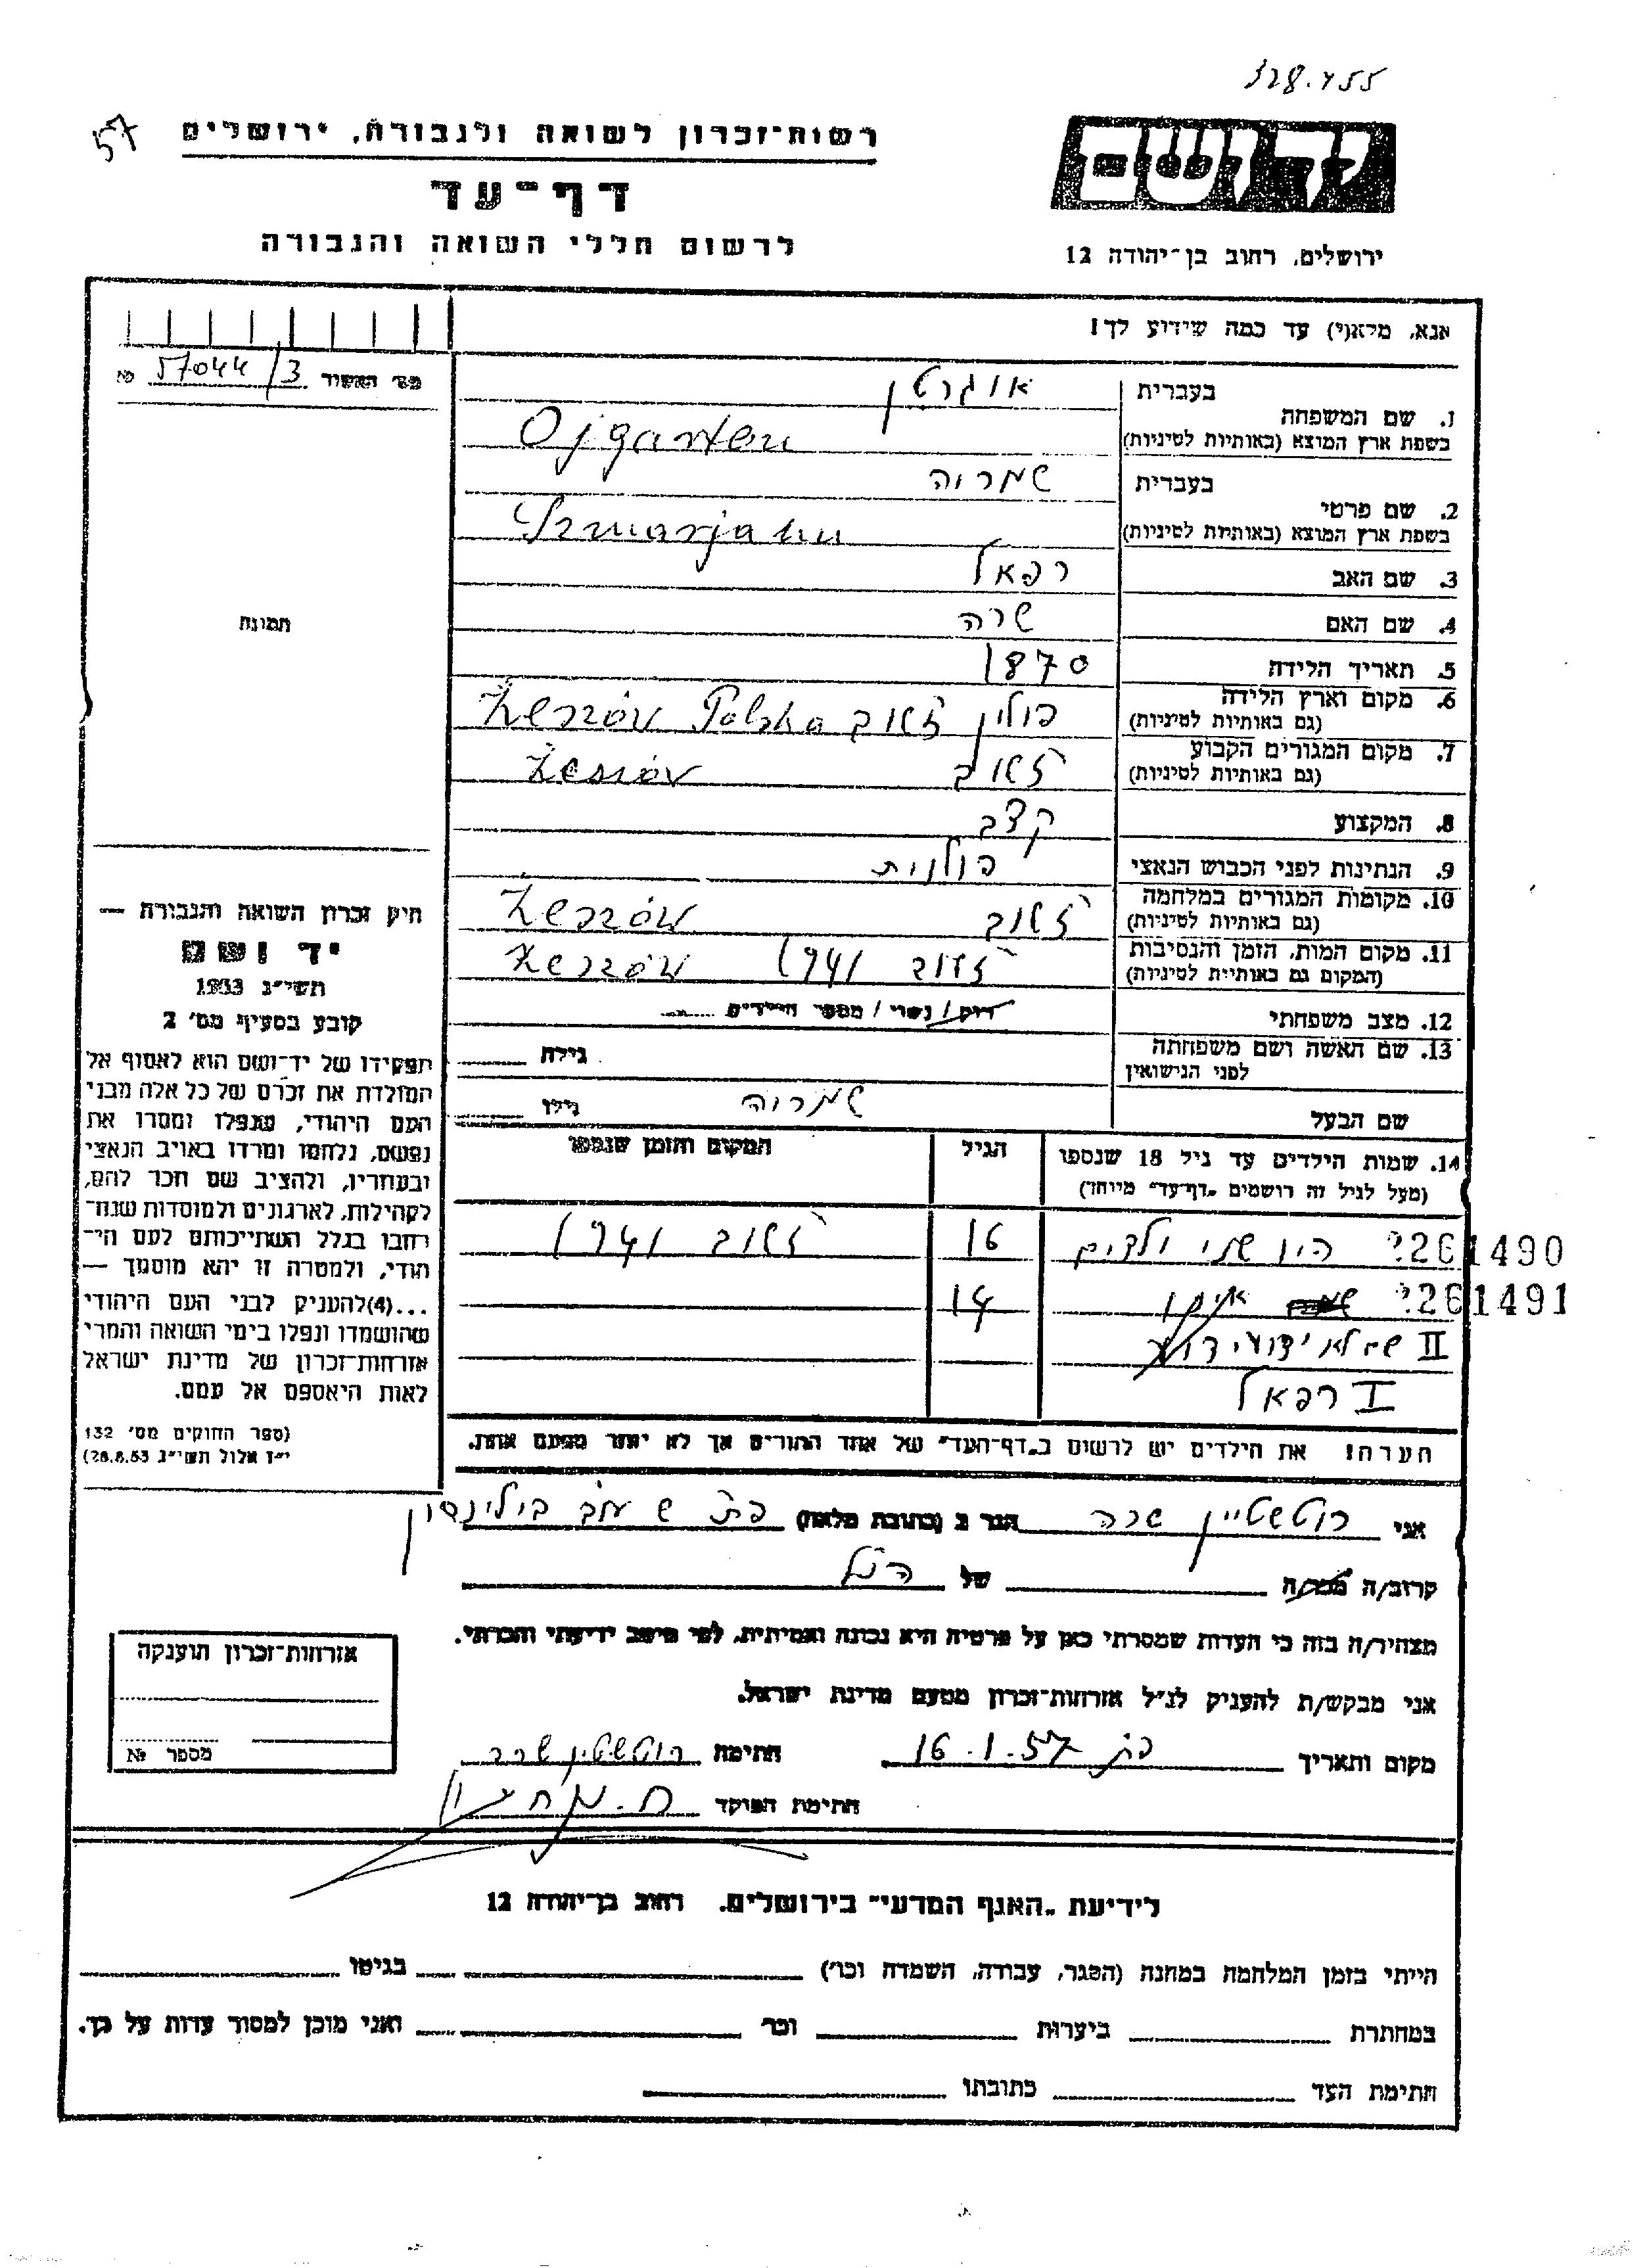 328.455
57
יד ושם
רשות-זכרון לשואה ולגבורה, ירושלים
דף-עד
לרשום חללי השואה והגבורה
ירושלים, רחוב בן-יהודה 12
אנא, מלא(י) עד כמה שידוע לך!
מס' האשור 57044/3 №
בעברית אוגרטן
1. שם המשפחה
בשפת ארץ המוצא (באותיות לטיניות) Ojgarten
בעברית שמריה
2. שם פרטי
בשפת ארץ המוצא (באותיות לטיניות) Szmarjahu
3. שם האב רפאל
4. שם האם שרה
5. תאריך הלידה 1870
6. מקום וארץ הלידה
(גם באותיות לטיניות) פולין Polska
7. מקום המגורים הקבוע
(גם באותיות לטיניות)
8. המקצוע קצב
9. הנתינות לפני הכבוש הנאצי פולנית
10. מקומות המגורים במלחמה
(גם באותיות לטיניות)
11. מקום המות, הזמן והנסיבות
(המקום גם באותיות לטיניות)
12. מצב משפחתי רווק / נשוי / מספר הילדים
13. שם האשה ושם משפחתה
לפני הנישואין גילה
שם הבעל שמריה גילו
14. שמות הילדים עד גיל 18 שנספו
(מעל לגיל זה רושמים "דף-עד" מיוחד) הגיל המקום והזמן שנספו
?261490 היו שני ילדים 16
?261491 14
II
I רפאל
הערה! את הילדים יש לרשום ב"דף-העד" של אחד ההורים אך לא יותר מפעם אחת.
תמונה
חוק זכרון השואה והגבורה —
יד ושם
תשי"ג 1953
קובע בסעיף מס' 2
תפקידו של יד-ושם הוא לאסוף אל
המולדת את זכרם של כל אלה מבני
העם היהודי, שנפלו ומסרו את
נפשם, נלחמו ומרדו באויב הנאצי
ובעוזריו, ולהציב שם וזכר להם,
לקהילות, לארגונים ולמוסדות שנח-
רבו בגלל השתייכותם לעם היה-
הודי, ולמטרה זו יהא מוסמך —
...(4)להעניק לבני העם היהודי
שהושמדו ונפלו בימי השואה והמרי
אזרחות-זכרון של מדינת ישראל
לאות היאספם אל עמם.
(ספר החוקים מס' 132
י"ז אלול תשי"ג 28.8.53)
אני רוטשטיין שרה הגר ב (כתובת מלאה) פת בילינסון
קרוב/ה מכר/ה של הנ"ל
מצהיר/ה בזה כי העדות שמסרתי כאן על פרטיה היא נכונה ואמיתית, לפי מיטב ידיעתי והכרתי.
אני מבקש/ת להעניק לנ"ל אזרחות-זכרון מטעם מדינת ישראל.
מקום ותאריך פת 16.1.57 חתימה רוטשטיין שרה
חתימת הפוקד
אזרחות-זכרון הוענקה
מספר №
לידיעת "האגף המדעי" בירושלים. רחוב בן-יהודה 12
הייתי בזמן המלחמה במחנה (הסגר, עבודה, השמדה וכו') בגיטו
במחתרת ביערות וכו' ואני מוכן למסור עדות על כך.
חתימת העד כתובתו